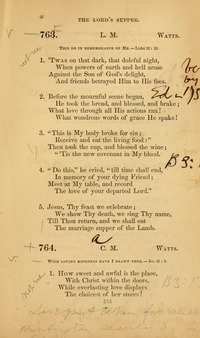 THE LORD'S SUPPER.
763. L. M. WATTS.
THIS DO IN REMEMBRANCE OF ME.—Luke 22: 19.
1. 'TWAS on that dark, that doleful night,
When powers of earth and hell arose
Against the Son of God's delight,
And friends betrayed Him to His foes.
2. Before the mournful scene began,
He took the bread, and blessed, and brake;
What love through all His actions ran!
What wondrous words of grace He spake!
3. "This is My body broke for sin;
Receive and eat the living food:"
Then took the cup, and blessed the wine;
"'Tis the new covenant in My blood.
4. "Do this," he cried, "till time shall end,
In memory of your dying Friend;
Meet at My table, and record
The love of your departed Lord."
5. Jesus, Thy feast we celebrate;
We show Thy death, we sing Thy name,
Till Thou return, and we shall eat
The marriage supper of the Lamb.
a
764. C. M. WATTS.
WITH LOVING KINDNESS HAVE I DRAWN THEE.—Jer. 31: 3.
1. HOW sweet and awful is the place,
With Christ within the doors,
While everlasting love displays
The choicest of her stores!